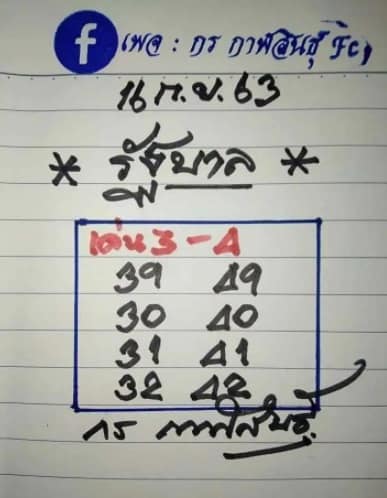 f เพจ : กร กาฬสินธุ์ Fc,
16 ก.ย. 63
* รัฐบาล *
เด่น 3 - 4
39 49
30 40
31 41
32 42
กร กาฬสินธุ์